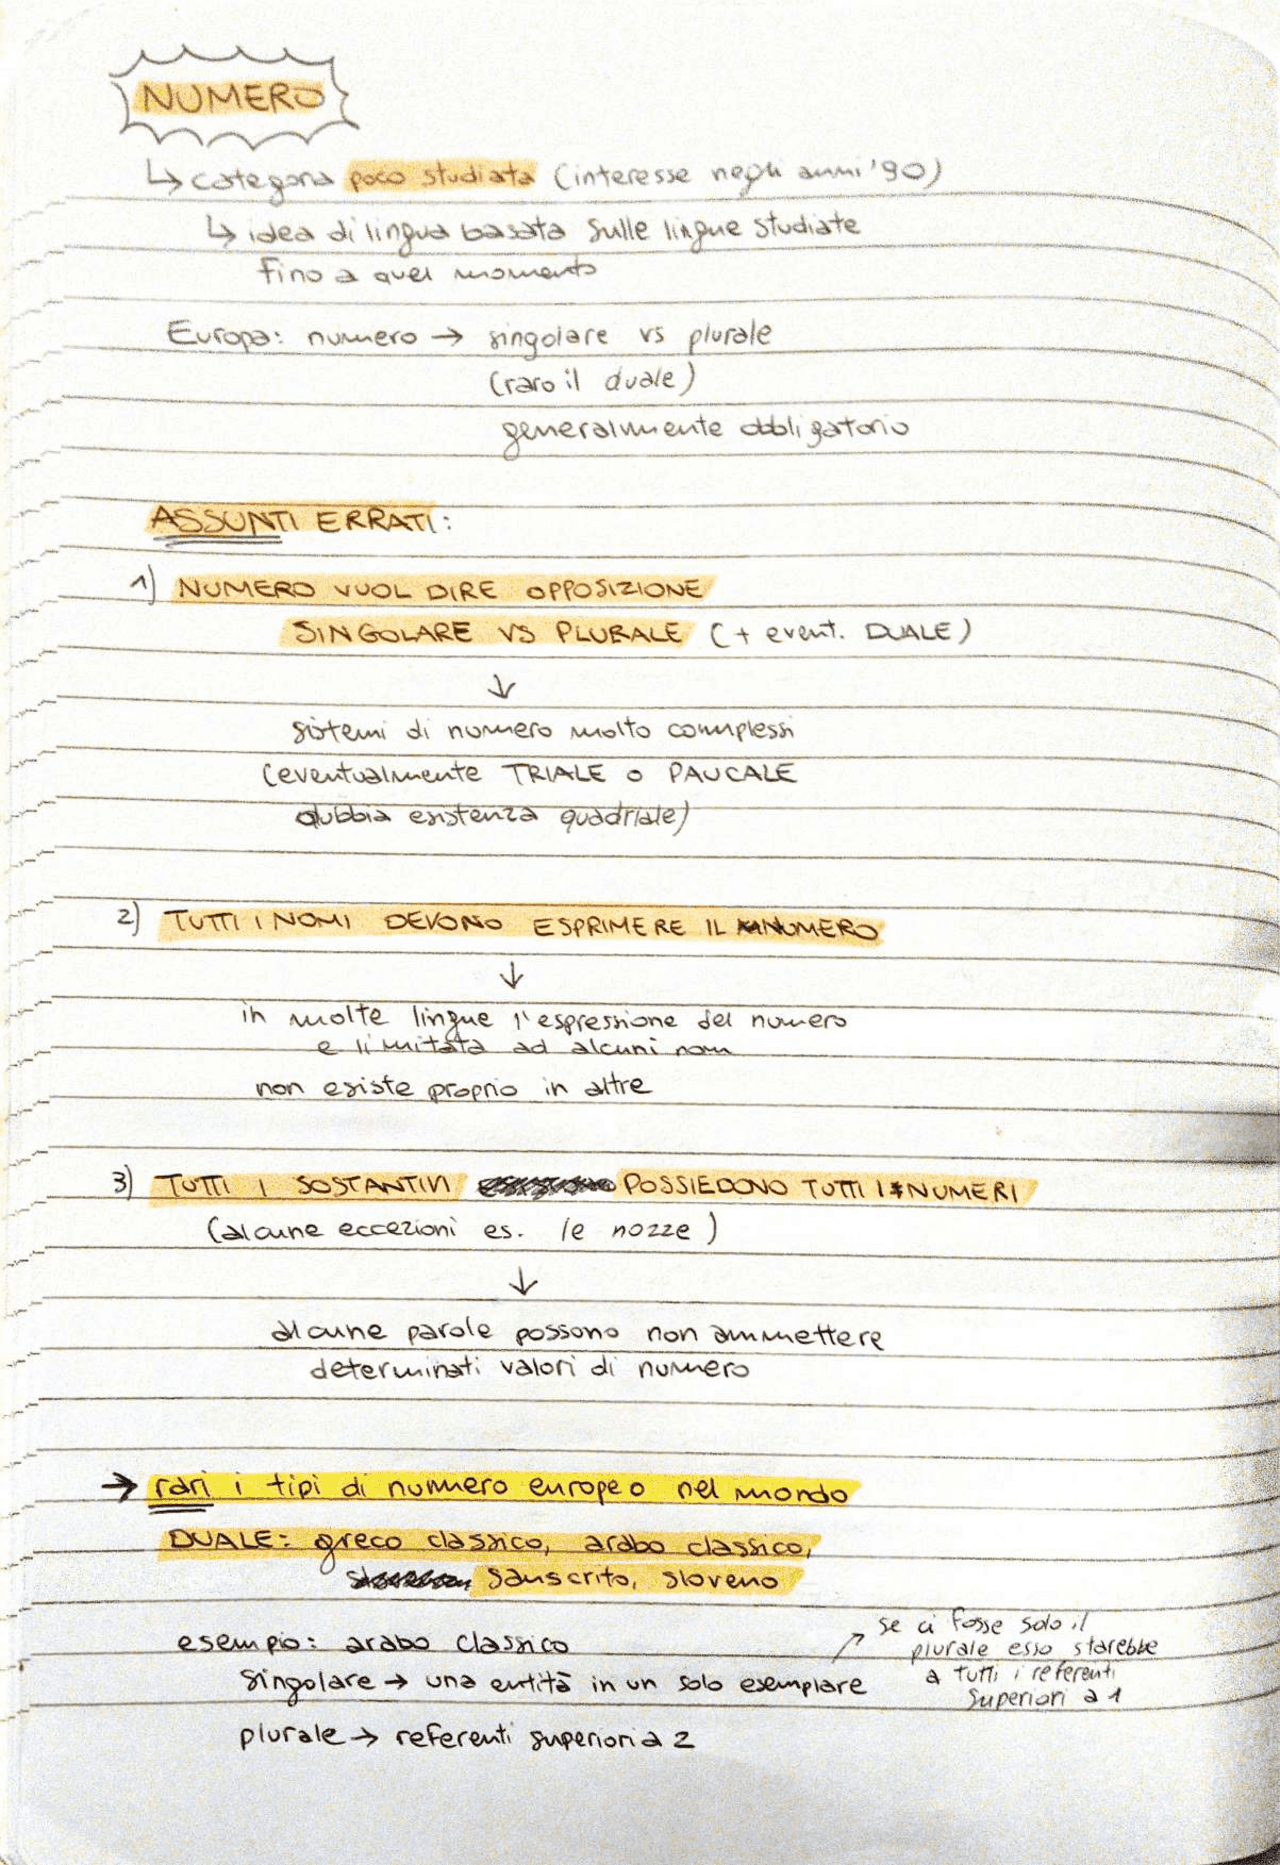 NUMERO
↳ categoria poco studiata (interesse negli anni '90)
↳ idea di lingua basata sulle lingue studiate
fino a quel momento
Europa: numero → singolare vs plurale
(raro il duale)
generalmente obbligatorio
ASSUNTI ERRATI:
1) NUMERO VUOL DIRE OPPOSIZIONE
SINGOLARE VS PLURALE (+ event. DUALE)
↓
sistemi di numero molto complessi
(eventualmente TRIALE o PAUCALE
dubbia esistenza quadriale)
2) TUTTI I NOMI DEVONO ESPRIMERE IL NUMERO
↓
in molte lingue l'espressione del numero
e limitata ad alcuni nomi
non esiste proprio in altre
3) TUTTI I SOSTANTIVI POSSIEDONO TUTTI I NUMERI
(alcune eccezioni es. le nozze)
↓
alcune parole possono non ammettere
determinati valori di numero
→ rari i tipi di numero europeo nel mondo
DUALE: greco classico, arabo classico,
sanscrito, sloveno
esempio: arabo classico
singolare → una entità in un solo esemplare
plurale → referenti superiori a 2
↗ se ci fosse solo il
plurale esso starebbe
a tutti i referenti
superiori a 1